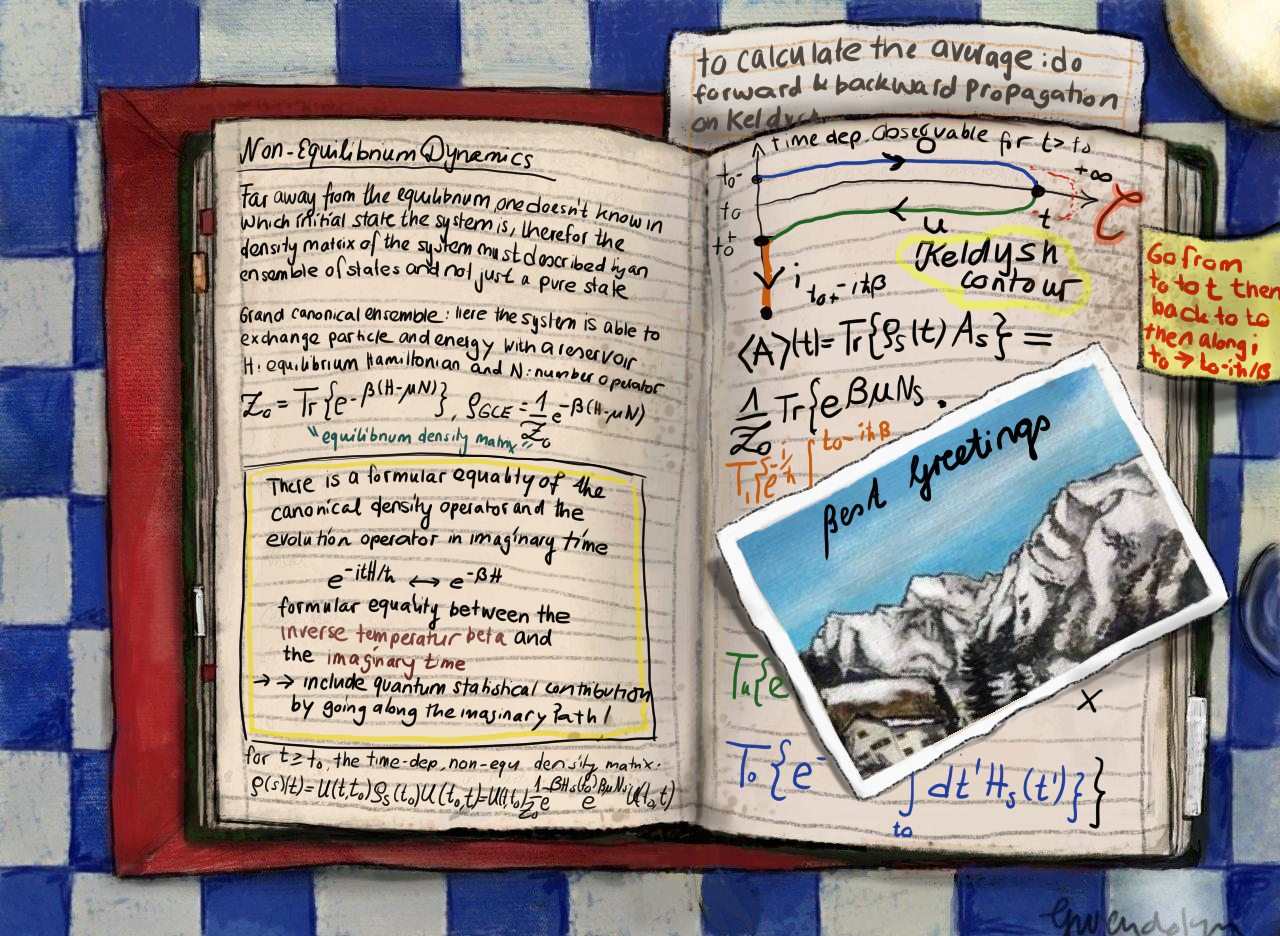 to calculate the average: do
forward & backward propagation
on Keldysh
Non-Equilibrium Dynamics
Far away from the equilibrium one doesn't know in
which initial state the system is, therefor the
density matrix of the system must described by an
ensemble of states and not just a pure state
Grand canonical ensemble: here the system is able to
exchange particle and energy with a reservoir
H: equilibrium Hamiltonian and N: number operator
Z₀ = Tr{e^-β(H-μN)}, ρ_GCE = 1/Z₀ e^-β(H-μN)
"equilibrium density matrix"
There is a formular equality of the
canonical density operator and the
evolution operator in imaginary time
e^-itH/ħ ↔ e^-βH
formular equality between the
inverse temperatur beta and
the imaginary time
→ → include quantum statistical contribution
by going along the imaginary Path!
for t ≥ t₀, the time-dep, non-equ density matrix:
ρ(s)(t) = U(t,t₀) ρ_s(t₀) U(t₀,t) = U(t,t₀) 1/Z₀ e^-βH_s(t₀) e^βμN_s U(t₀,t)
time dep. Observable for t > t₀
O
t₀-
+∞
t₀
t
C
t₀+
u
i
t₀+ -iħβ
Keldysh
contour
Go from
t₀ to t then
back to t₀
then along i
t₀ → t₀-iħ/β
⟨A⟩(t) = Tr{ρ_s(t) A_s} =
1/Z₀ Tr{e^βμN_s .
T_i{e^-i/ħ ∫^t₀-iħβ
Best Greetings
T_u{e
x
T_o{e^- ∫_t₀ dt' H_s(t')}}
Gwendolyn